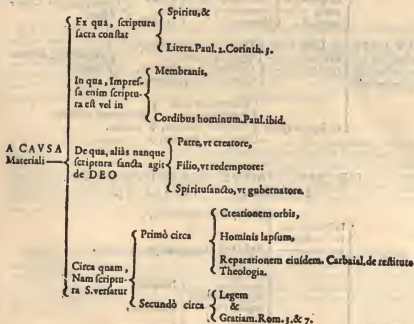 Ex qua, scriptura
sacra constat
Spiritu, &
Litera. Paul. 2. Corinth. 3.
In qua, Impres-
sa enim scriptu-
ra est vel in
Membranis,
Cordibus hominum. Paul. ibid.
A CAVSA
Materiali
De qua, aliàs nanque
scriptura sancta agit
de DEO
Patre, vt creatore,
Filio, vt redemptore:
Spiritusancto, vt gubernatore.
Circa quam,
Nam scriptu-
ra S. versatur
Primò circa
Creationem orbis,
Hominis lapsum,
Reparationem eiusdem. Carbaial. de restituta
Theologia.
Secundò circa
Legem
&
Gratiam. Rom. 3. & 7.